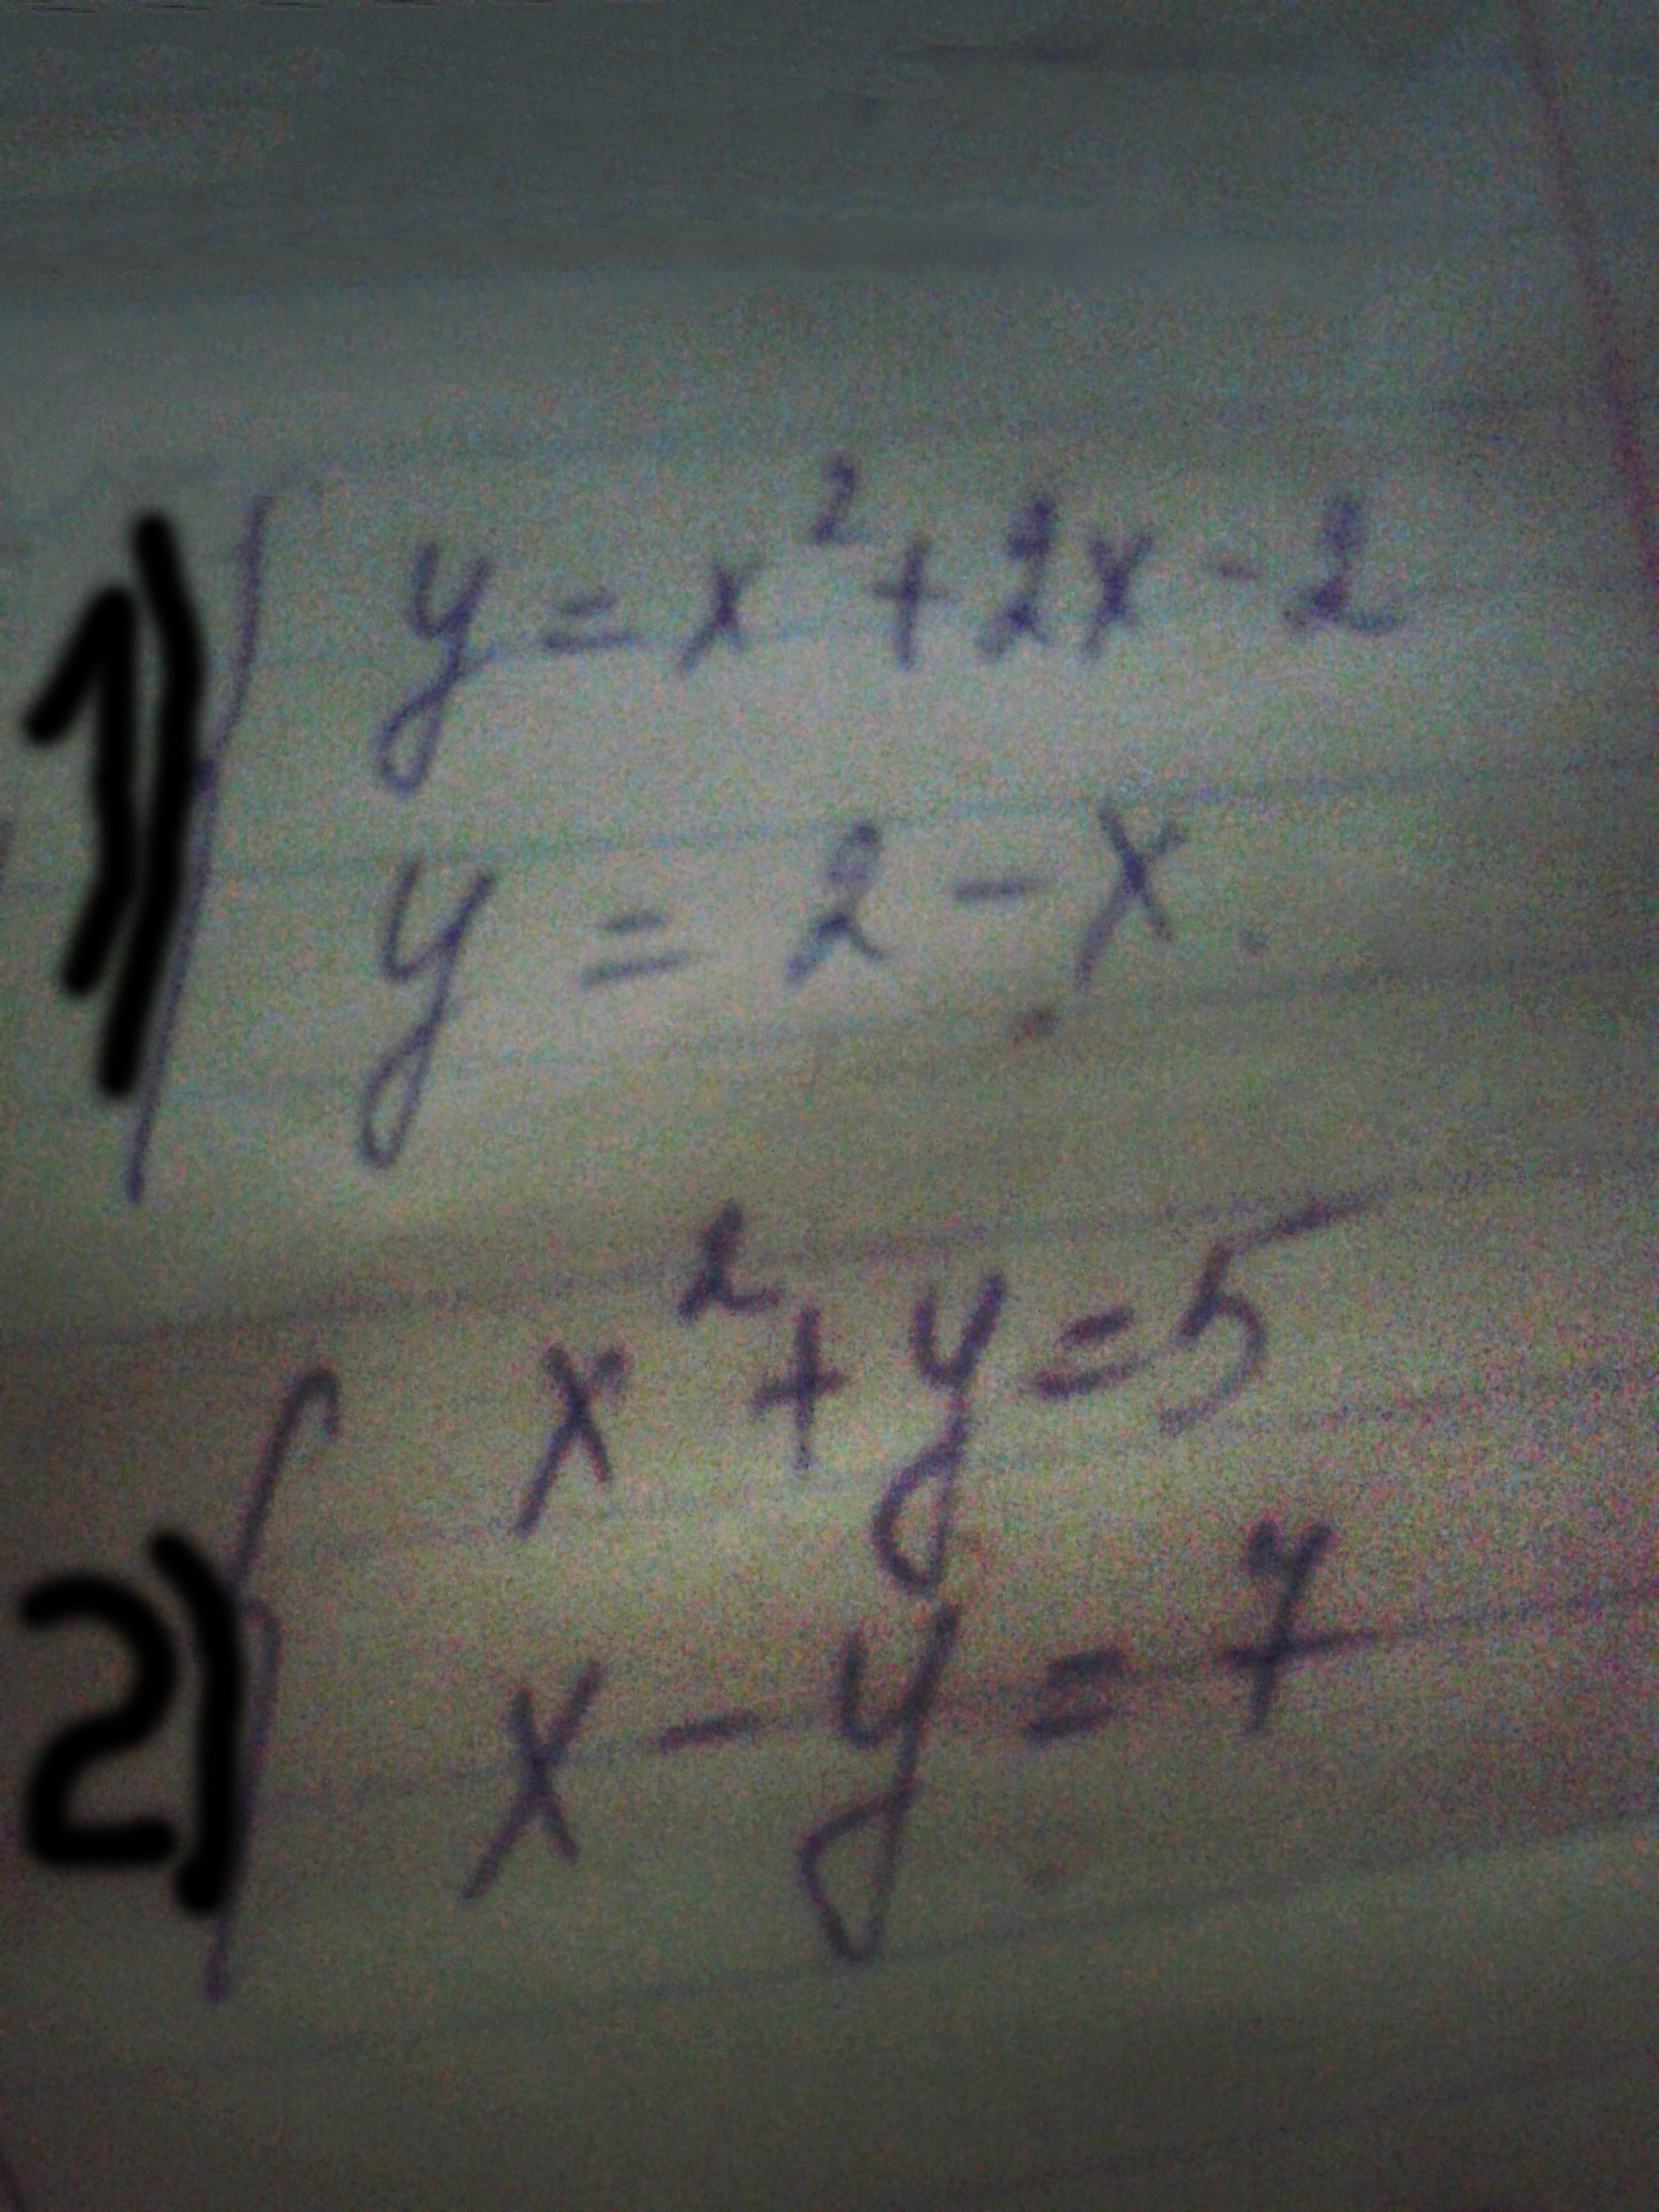 1) { y = x² + 2x - 2
y = 2 - x
2) { x² + y = 5
x - y = 7